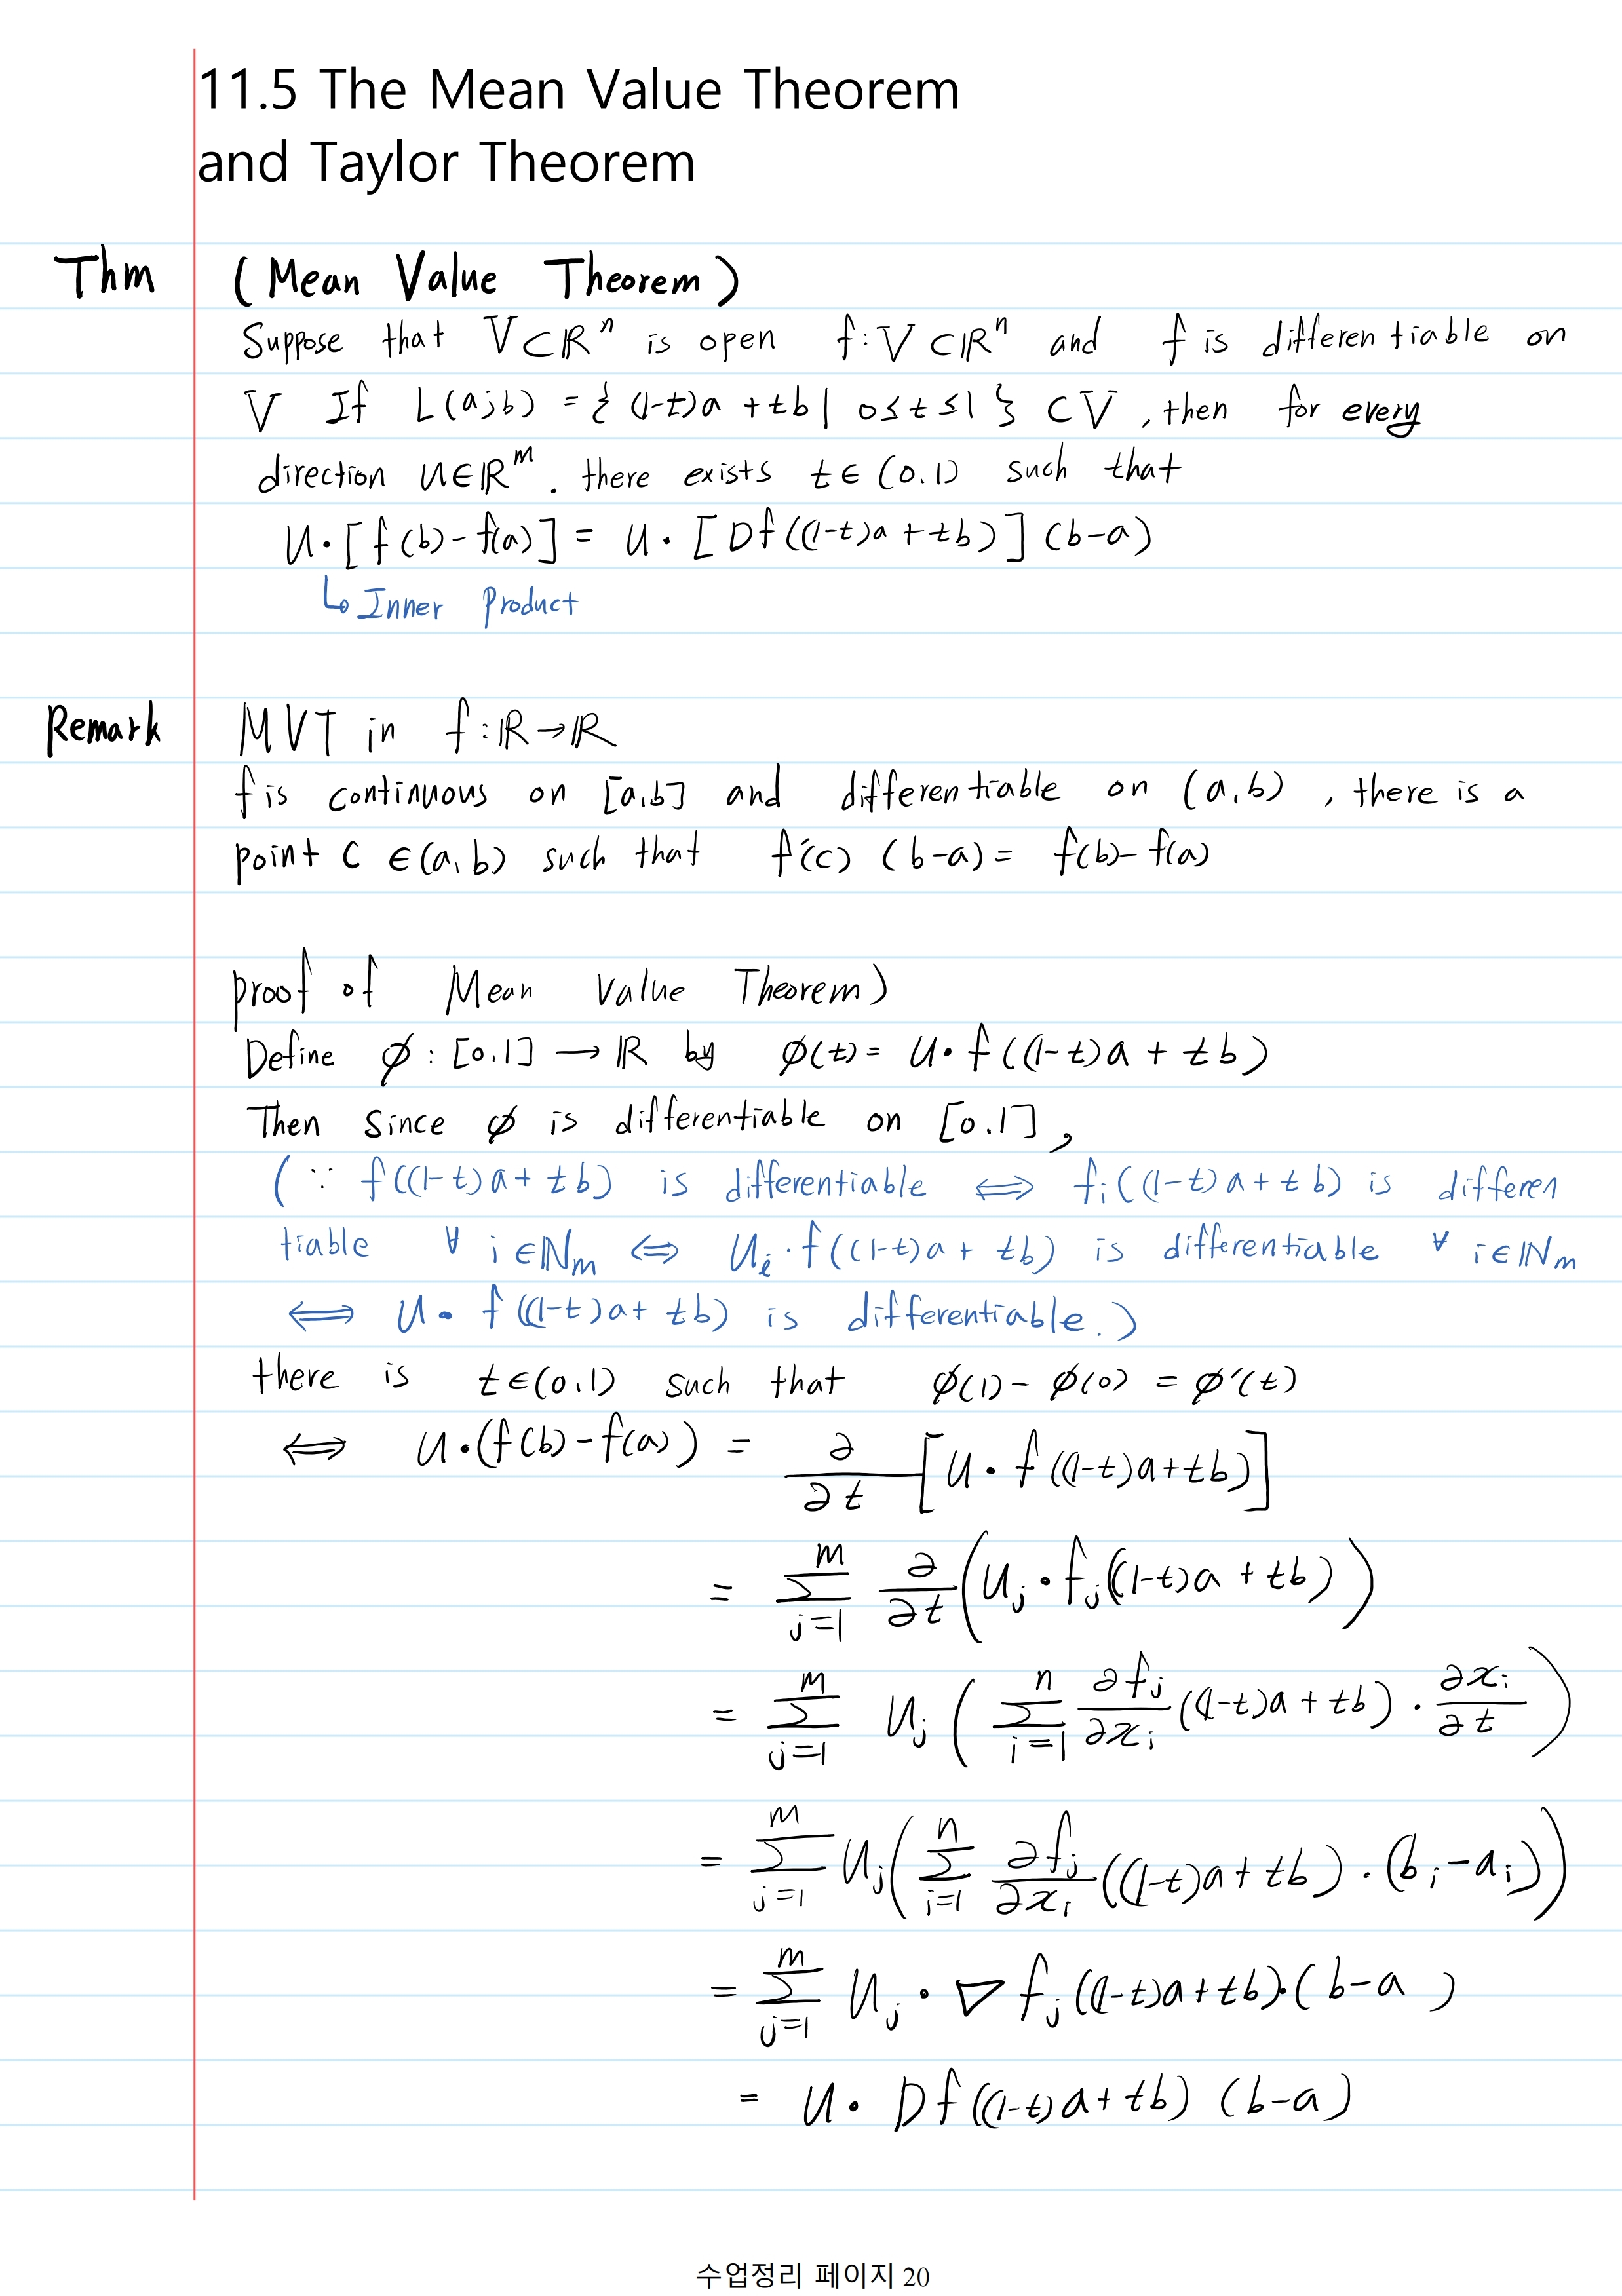 11.5 The Mean Value Theorem
and Taylor Theorem
Thm (Mean Value Theorem)
Suppose that V⊂ℝⁿ is open f:V⊂ℝⁿ and f is differentiable on
V If L(a;b) = { (1-t)a + tb | 0≤t≤1 } ⊂V, then for every
direction u∈ℝᵐ. there exists t∈(0,1) such that
u·[f(b)-f(a)] = u·[Df((1-t)a+tb)](b-a)
↳ Inner Product
Remark MVT in f:ℝ→ℝ
f is continuous on [a,b] and differentiable on (a,b), there is a
point c ∈(a,b) such that f'(c)(b-a) = f(b)-f(a)
proof of Mean Value Theorem)
Define ø:[0,1]→ℝ by ø(t) = u·f((1-t)a + tb)
Then since ø is differentiable on [0,1],
(∵ f((1-t)a+tb) is differentiable ⟺ fᵢ((1-t)a+tb) is differen
tiable ∀ i∈ℕₘ ⟺ uᵢ·f((1-t)a + tb) is differentiable ∀ i∈ℕₘ
⟺ u·f((1-t)a+tb) is differentiable.)
there is t∈(0,1) such that ø(1)-ø(0) = ø'(t)
⟺ u·(f(b)-f(a)) = ∂/∂t [u·f((1-t)a+tb)]
= ∑_{j=1}^{m} ∂/∂t (uⱼ·fⱼ((1-t)a+tb))
= ∑_{j=1}^{m} uⱼ (∑_{i=1}^{n} ∂fⱼ/∂xᵢ ((1-t)a+tb)·∂xᵢ/∂t)
= ∑_{j=1}^{m} uⱼ (∑_{i=1}^{n} ∂fⱼ/∂xᵢ ((1-t)a+tb)·(bᵢ-aᵢ))
= ∑_{j=1}^{m} uⱼ·∇fⱼ((1-t)a+tb)·(b-a)
= u·Df((1-t)a+tb)(b-a)
수업정리 페이지 20